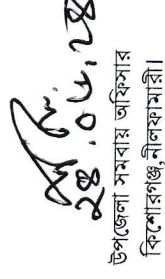 ২৪.০৮.২৪
উপজেলা সমবায় অফিসার
কিশোরগঞ্জ,নীলফামারী।